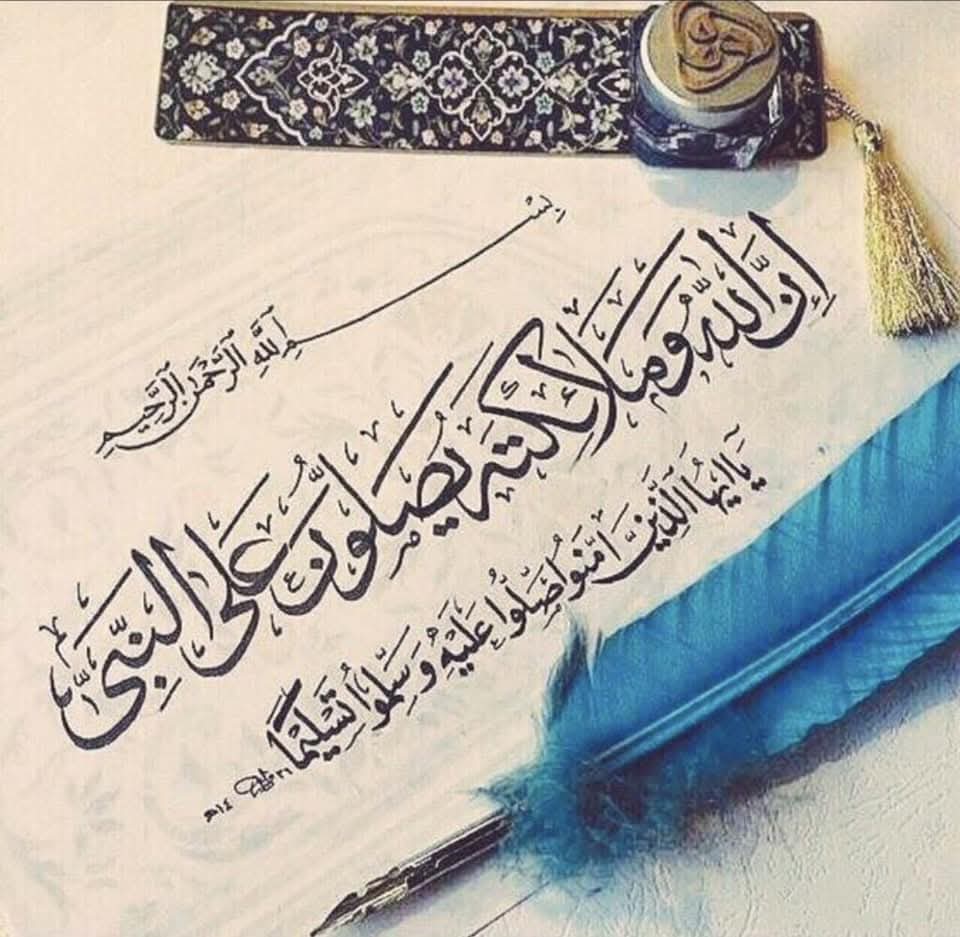 بِسْمِ ٱللَّهِ ٱلرَّحْمَنِ ٱلرَّحِيمِ
إِنَّ اللَّهَ وَمَلَائِكَتَهُ يُصَلُّونَ عَلَى النَّبِيِّ
يَا أَيُّهَا الَّذِينَ آمَنُوا صَلُّوا عَلَيْهِ وَسَلِّمُوا تَسْلِيمًا